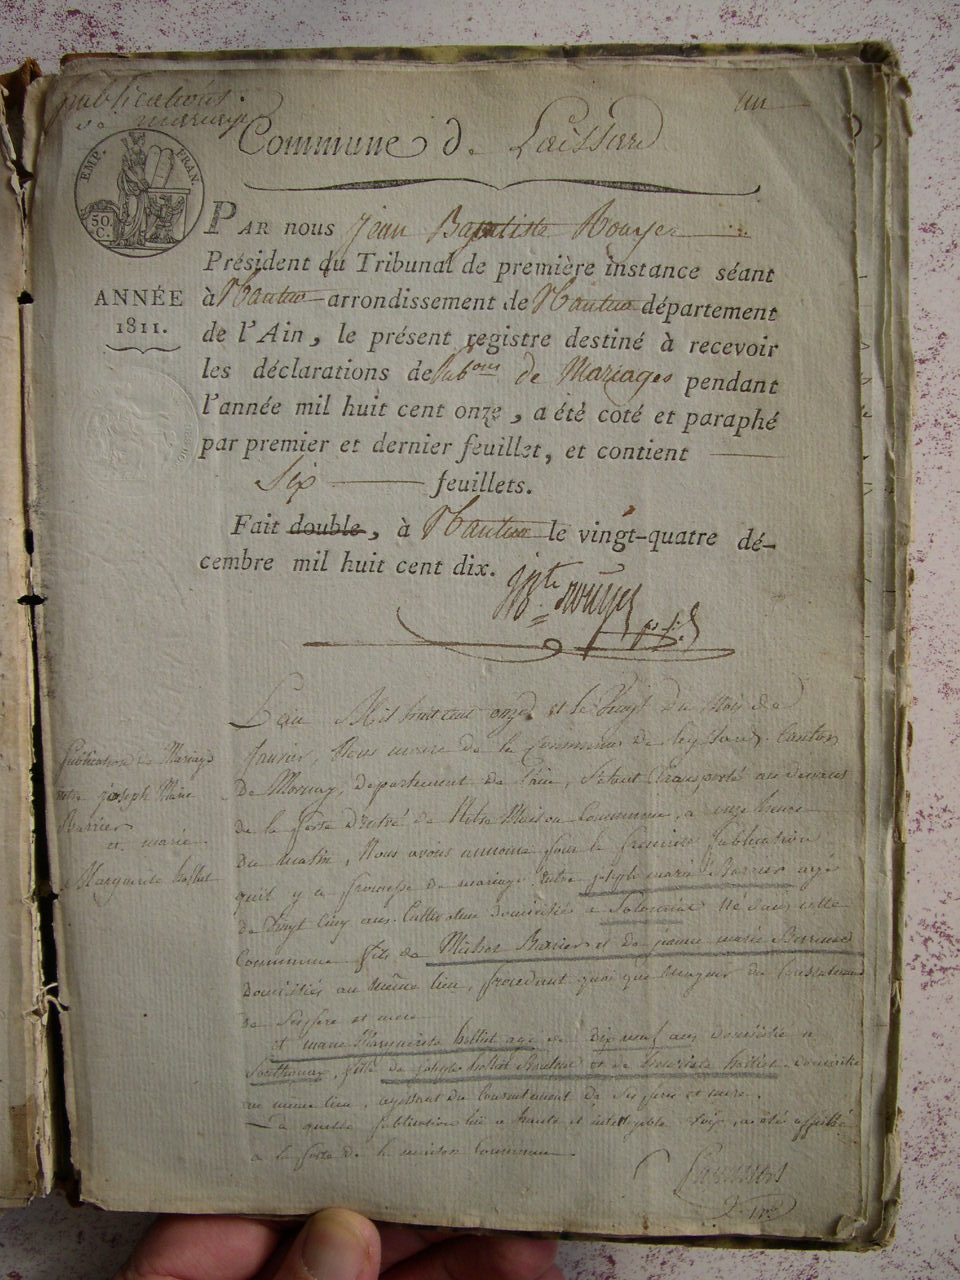 publications
de mariage
un
Commune de Leissard
EMP. FRAN.
50.
C.
PAR nous Jean Baptiste Rouyer
Président du Tribunal de première instance séant
ANNÉE
1811.
à Nantua arrondissement de Nantua département
de l'Ain, le présent registre destiné à recevoir
les déclarations de Pub.ons de Mariages pendant
l'année mil huit cent onze, a été coté et paraphé
par premier et dernier feuillet, et contient
Six feuillets.
Fait double, à Nantua le vingt-quatre dé-
cembre mil huit cent dix.
Jn Bte Rouyer
L'an Mil huit cent onze et le Vingt du Mois de
Janvier, Nous maire de la Commune de Leyssard, Canton
Publication de Mariage
entre joseph Marie
Barrier
et marie
Marguerite
De Mornay, departement de l'ain, Setant transporté au devant
de la porte D'entré de Notre Maison Commune, a onze heure
Du matin, Nous avons annoncé pour la premiere publication
quil y a promesse de mariage Entre joseph marie Barrier agé
de Vingt Cinq ans Cultivateur domicilié a Solomiat Né dans cette
Commune fils de Barrier et de jeanne marie
Domiciliés au même lieu, procedant
de Ses pere et mere
et marie Marguerite agé de dix neuf ans domicilié a
fille de joseph et de domicilié
au même lieu, agissant du Consentement de Ses pere et mere.
La quelle publication lüe a haute et intelligible Voix, a été affiché
a la porte de la maison Commune.